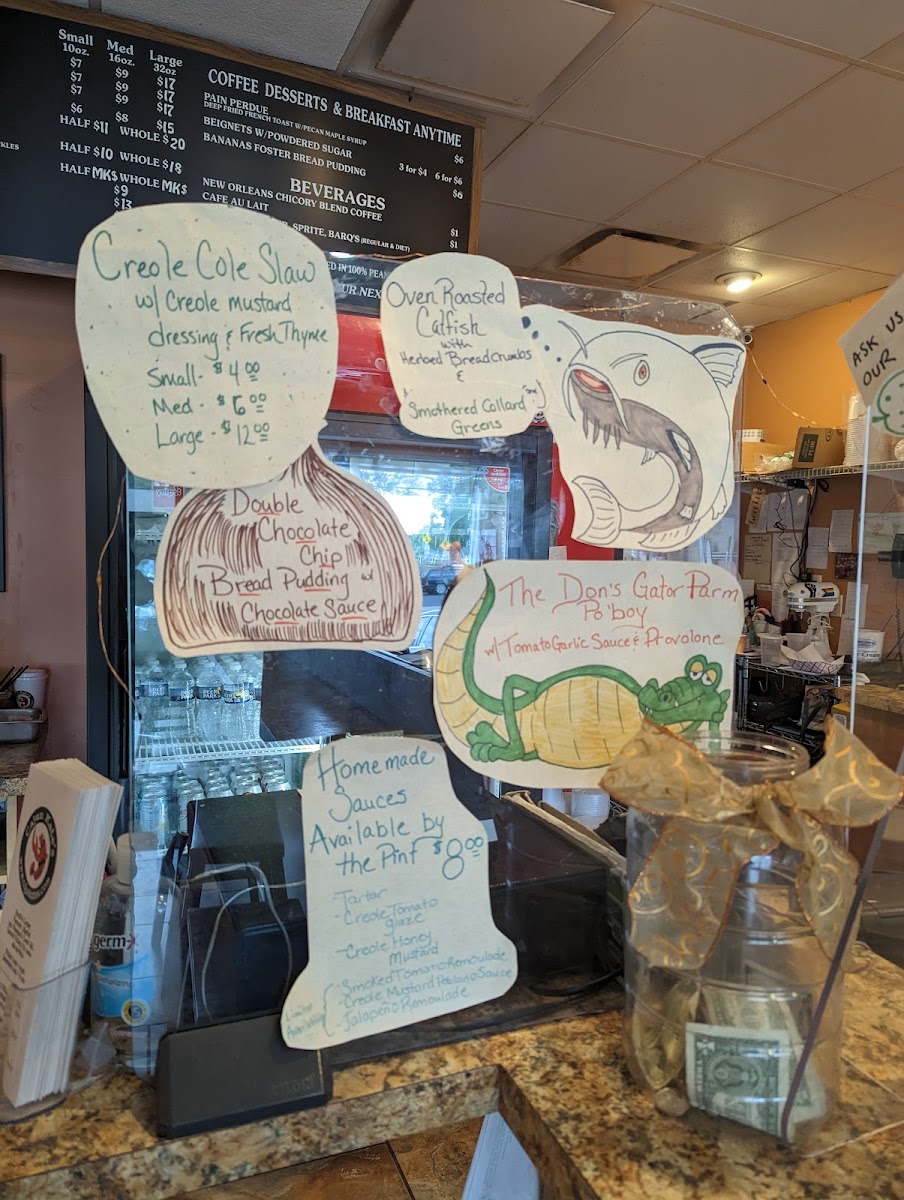 Small Med Large
10oz. 16oz. 32oz
$7 $9 $17
$7 $9 $17
$7 $9 $17
$6 $8 $15
HALF $11 WHOLE $20
HALF $10 WHOLE $18
HALF MK$ WHOLE MK$
$9
$13
COFFEE DESSERTS & BREAKFAST ANYTIME
PAIN PERDUE
DEEP FRIED FRENCH TOAST W/PECAN MAPLE SYRUP
$6
BEIGNETS W/POWDERED SUGAR
3 for $4 6 for $6
BANANAS FOSTER BREAD PUDDING
$6
BEVERAGES
NEW ORLEANS CHICORY BLEND COFFEE
$1
CAFE AU LAIT
$1
SPRITE, BARQ'S (REGULAR & DIET)
IN 100% PEAN
UR NEX
Creole Cole Slaw
w/ Creole mustard
dressing & Fresh Thyme
Small - $4.00
Med - $6.00
Large - $12.00
Oven Roasted
Catfish
with
Herbed Breadcrumbs
&
Smothered Collard
Greens
ASK US
OUR
Double
Chocolate
Chip
Bread Pudding w/
Chocolate Sauce
The Don's Gator Parm
Po'boy
w/ Tomato Garlic Sauce & Provolone
Homemade
Sauces
Available by
the Pint $8.00
- Tartar
- Creole Tomato
glaze
- Creole Honey
Mustard
- Smoked Tomato Remoulade
- Creole Mustard Poblano Sauce
- Jalapeño Remoulade
germ